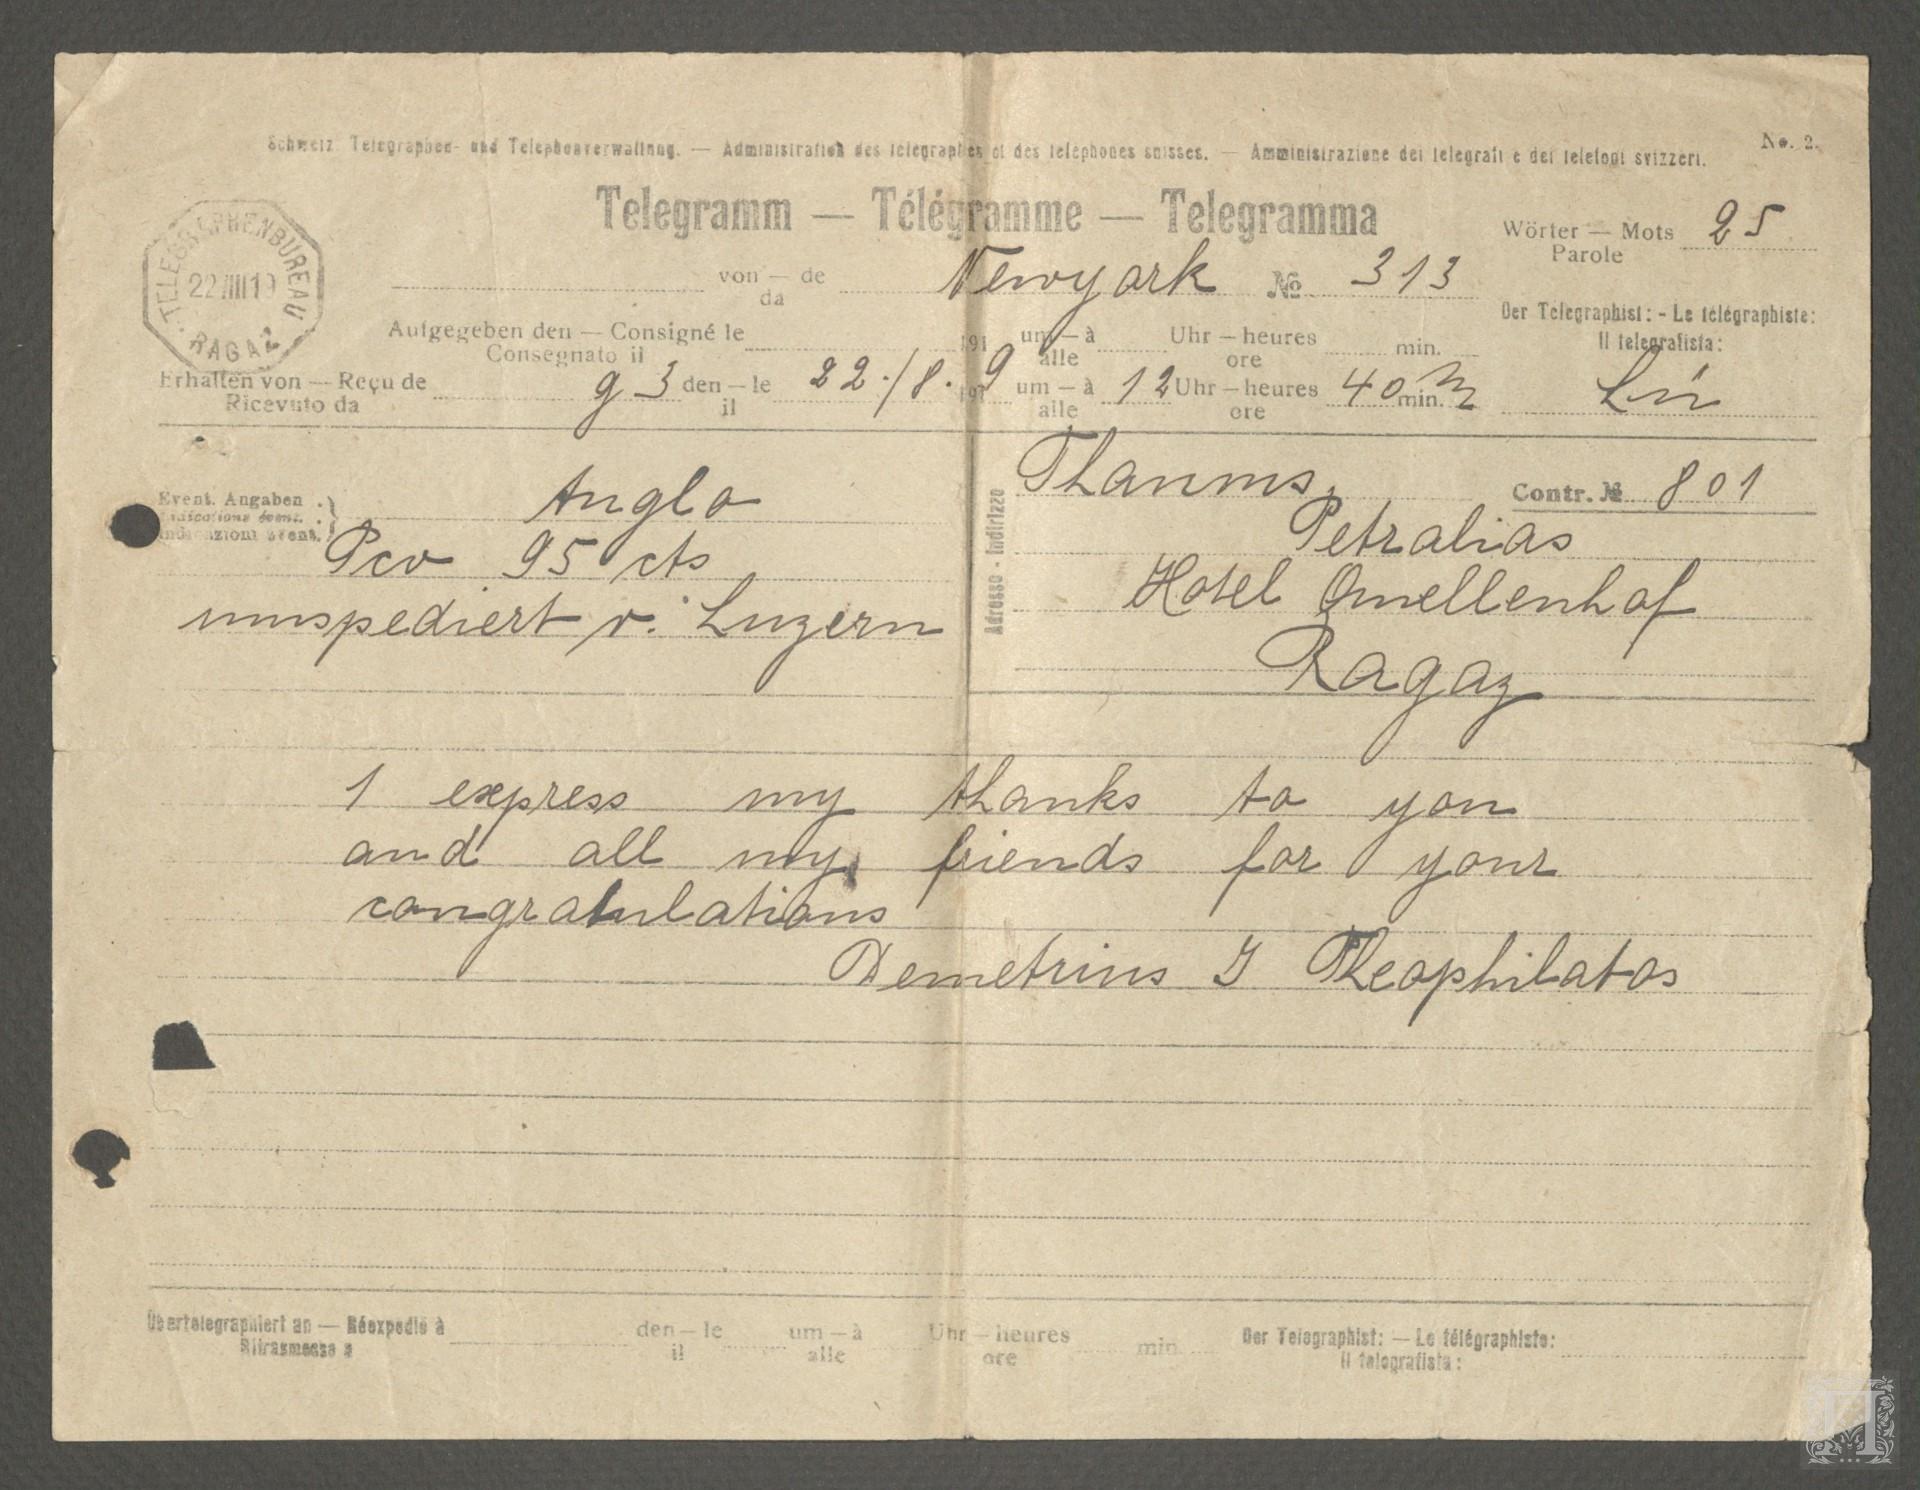 No. 2.
Schweiz. Telegraphen- und Telephonverwaltung. — Administration des télégraphes et des téléphones suisses. — Amministrazione dei telegrafi e dei telefoni svizzeri.
Telegramm — Télégramme — Telegramma
Wörter — Mots 25
Parole
TELEGRAPHENBUREAU
22 VIII 19
RAGAZ
von — de Newyork № 313
da
Der Telegraphist: - Le télégraphiste:
Il telegrafista:
Aufgegeben den — Consigné le 191 um — à Uhr — heures min.
Consegnato il alle ore
Erhalten von — Reçu de g 3 den — le 22./8. 9 191 um — à 12 Uhr — heures 40 min.
Ricevuto da il alle ore
Event. Angaben
Indications évent.
Indicazioni event.
Anglo
Pco 95 cts
umspediert v. Luzern
Adresse - Indirizzo
Thanms Contr. № 801
Petralias
Hotel Quellenhof
Ragaz
I express my thanks to you
and all my friends for your
congratulations
Demetrius J Theophilatos
Übertelegraphiert an — Réexpédié à den — le um — à Uhr — heures min. Der Telegraphist: — Le télégraphiste:
Ritrasmesso a il alle ore Il telegrafista: